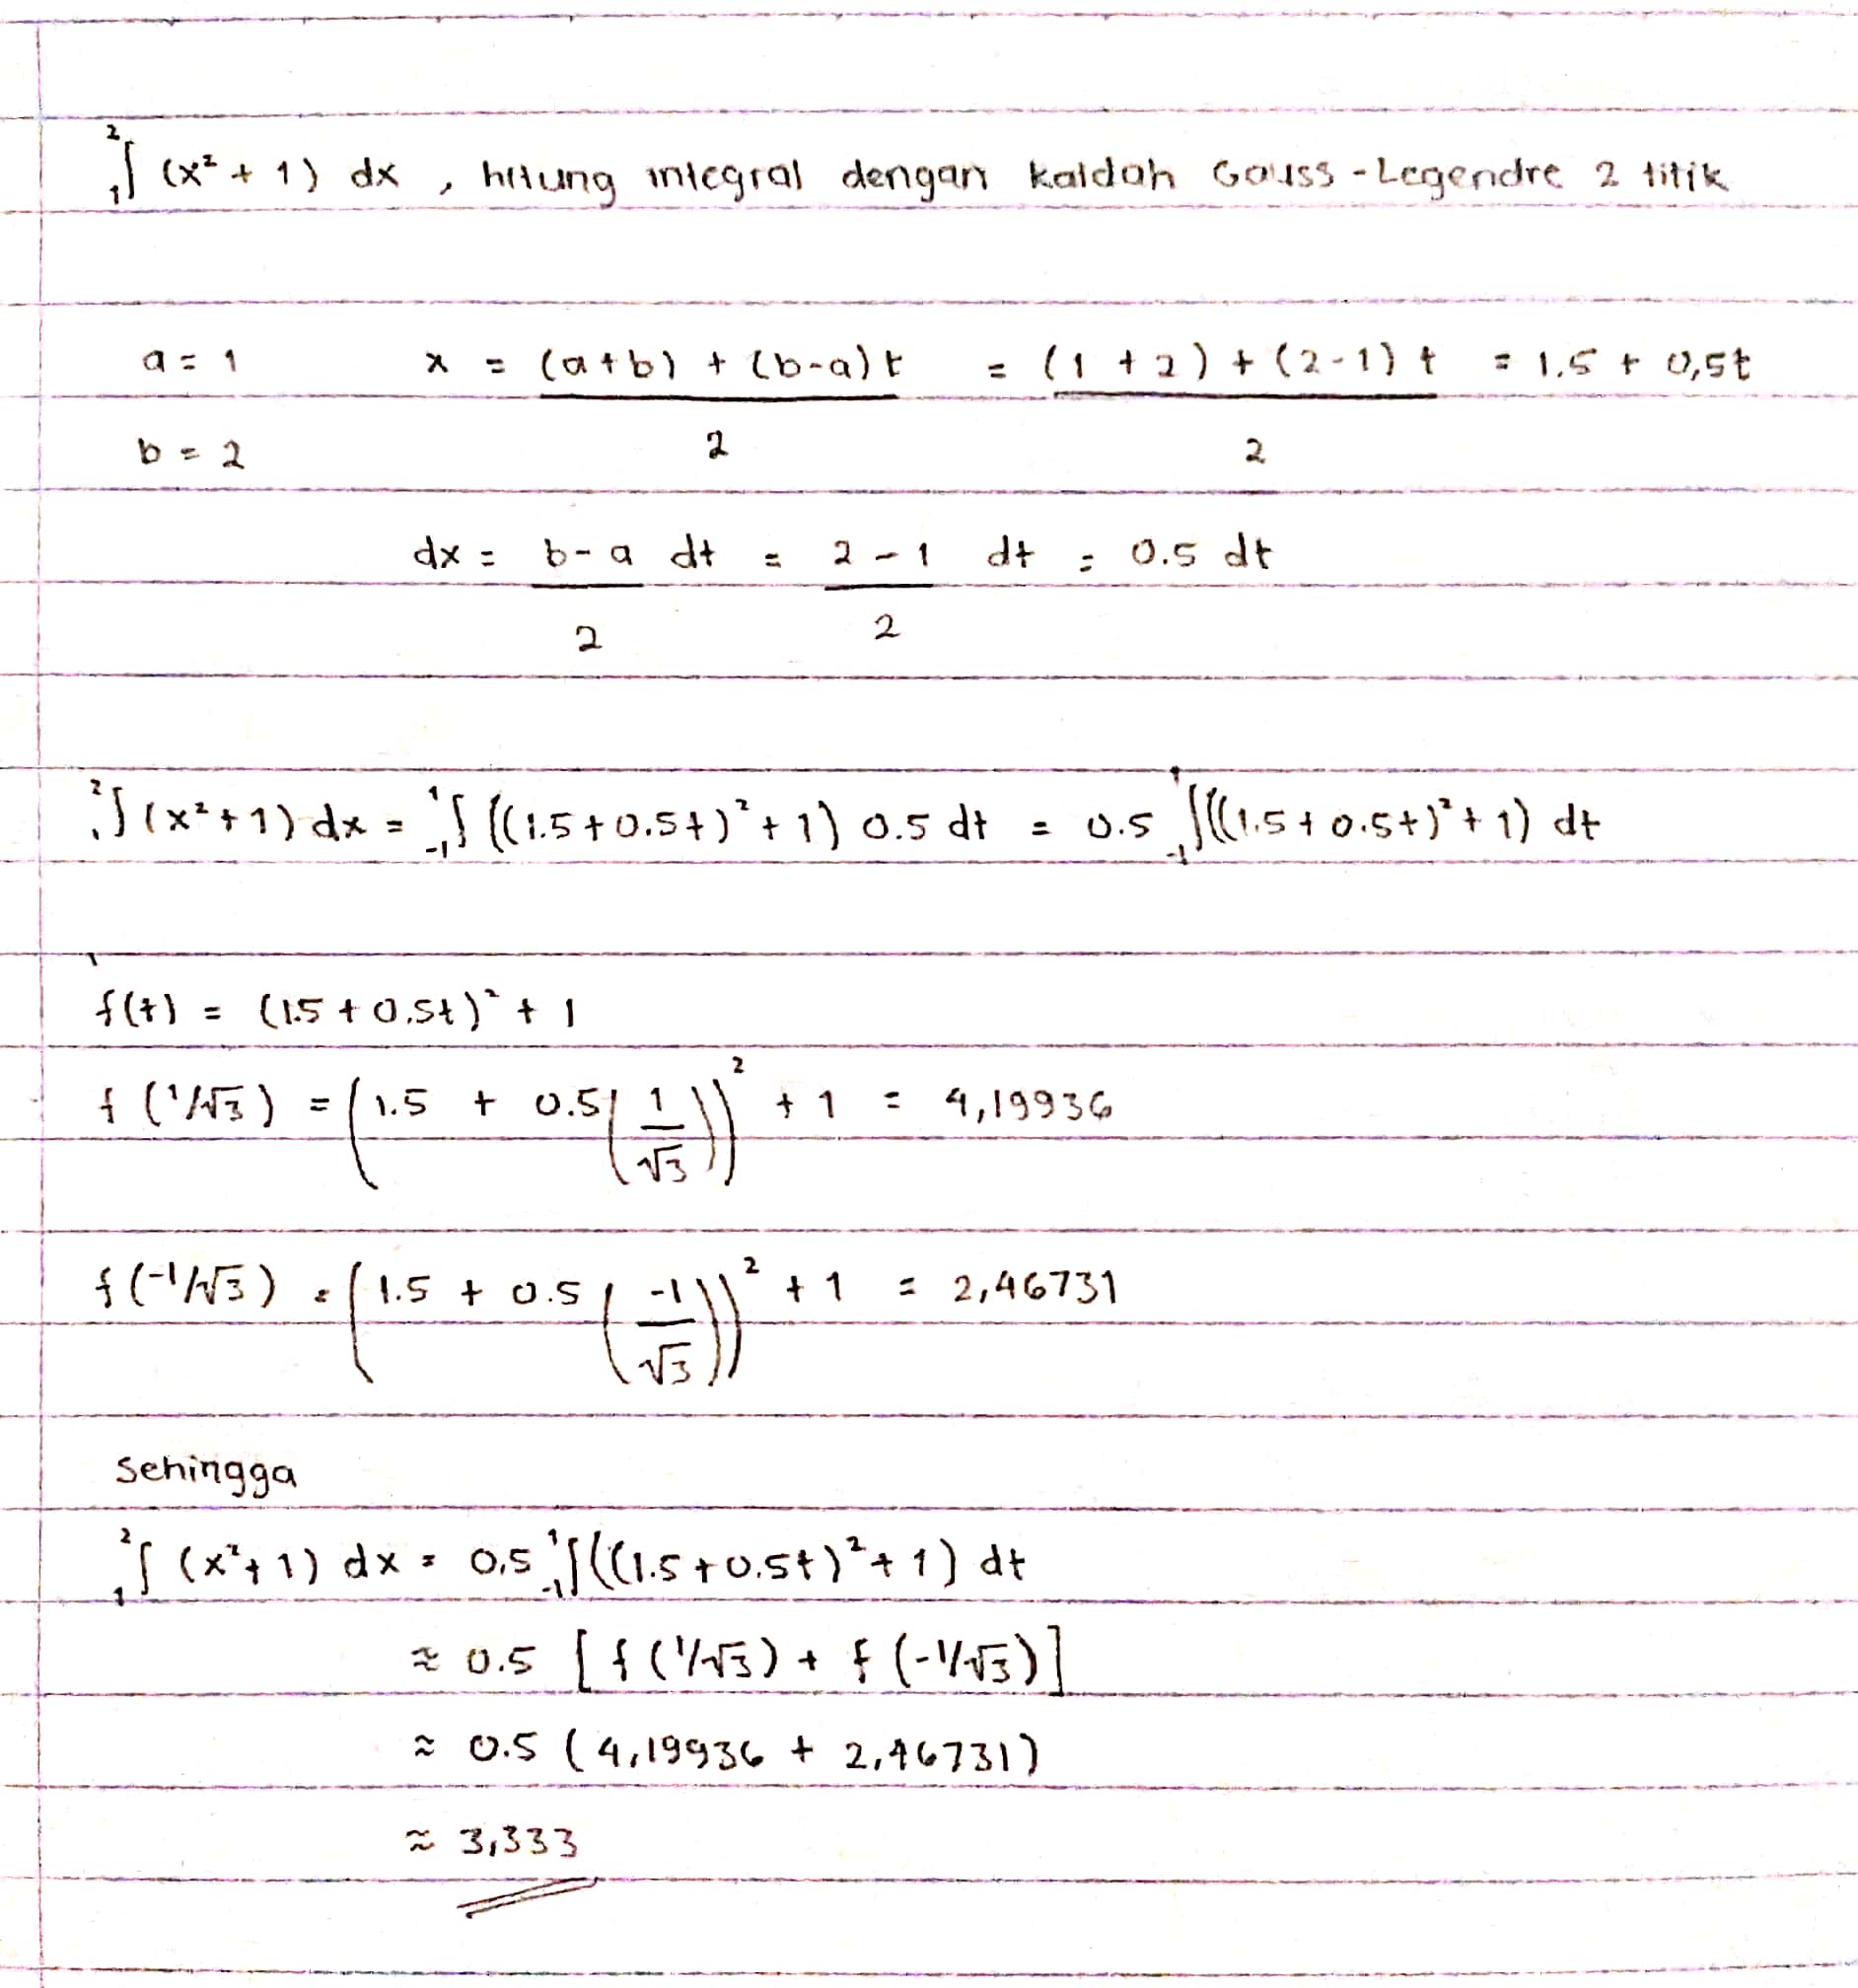 ₁∫² (x² + 1) dx , hitung integral dengan kaidah Gauss-Legendre 2 titik
a = 1 x = (a+b) + (b-a)t / 2 = (1 + 2) + (2-1) t / 2 = 1.5 + 0,5t
b = 2
dx = b-a / 2 dt = 2-1 / 2 dt = 0.5 dt
₁∫² (x²+1) dx = ₋₁∫¹ ((1.5+0.5t)²+1) 0.5 dt = 0.5 ₋₁∫¹ ((1.5+0.5t)²+1) dt
f(t) = (1.5 + 0.5t)² + 1
f (1/√3) = (1.5 + 0.5(1/√3))² + 1 = 4,19936
f (-1/√3) = (1.5 + 0.5(-1/√3))² + 1 = 2,46731
sehingga
₁∫² (x²+1) dx = 0,5 ₋₁∫¹ ((1.5+0.5t)²+1) dt
≈ 0.5 [f (1/√3) + f (-1/√3)]
≈ 0.5 (4,19936 + 2,46731)
≈ 3,333